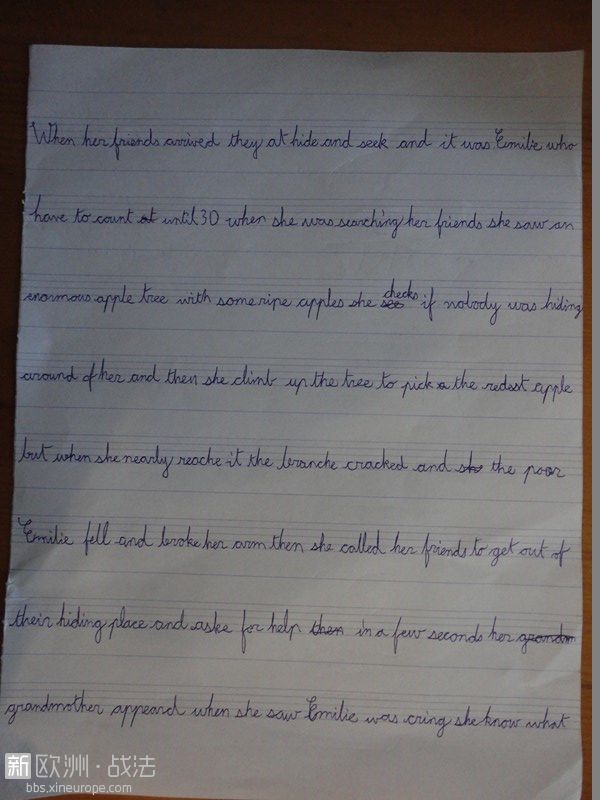 When her friends arrived they at hide and seek and it was Emilie who
have to count at until 30 when she was searching her friends she saw an
enormous apple tree with some ripe apples she see checks if nobody was hiding
around of her and then she climb up the tree to pick a the redest apple
but when she nearly reache it the branche cracked and sh the poor
Emilie fell and broke her arm then she called her friends to get out of
their hiding place and aske for help then in a few seconds her grandm
grandmother appeard when she saw Emilie was cring she know what
新欧洲·战法
bbs.xineurope.com